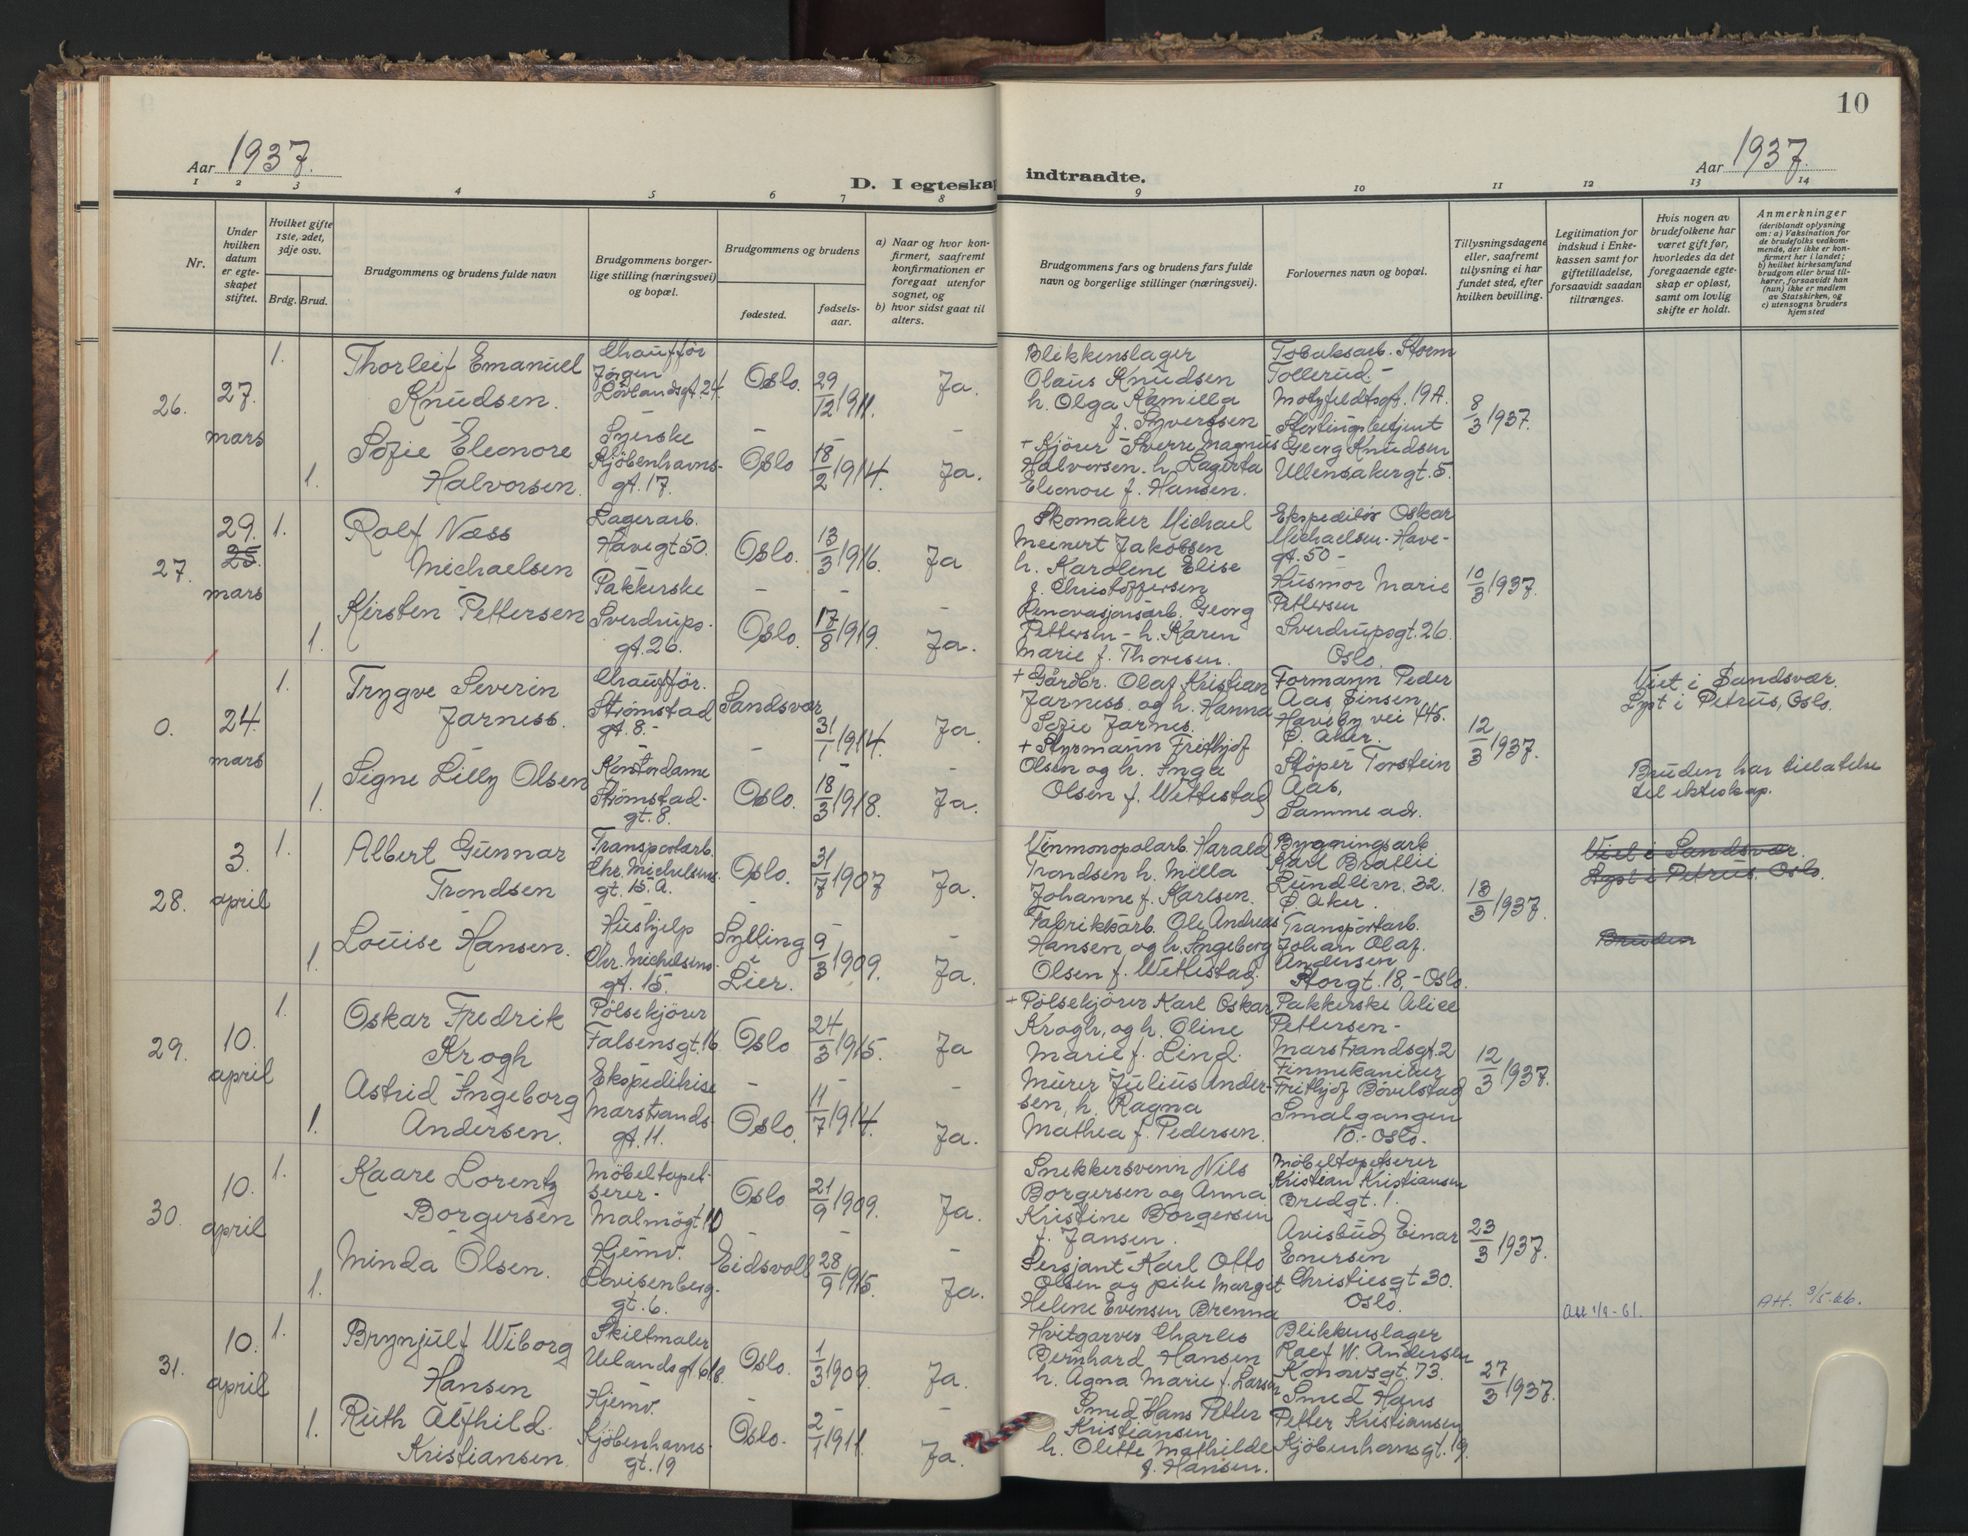 10
Aar 1937.
D. I egteskap
indtraadte.
Aar 1937.
1 2 3 4 5 6 7 8 9 10 11 12 13 14
Nr.
Under hvilken datum er egteskapet stiftet.
Hvilket gifte 1ste, 2det, 3dje osv.
Brdg. Brud.
Brudgommens og brudens fulde navn
Brudgommens borgerlige stilling (næringsvei) og bopæl.
Brudgommens og brudens
fødested.
fødselsaar.
a) Naar og hvor konfirmert, saafremt konfirmationen er foregaat utenfor sognet, og
b) hvor sidst gaat til alters.
Brudgommens fars og brudens fars fulde navn og borgerlige stillinger (næringsvei).
Forlovernes navn og bopæl.
Tillysningsdagene eller, saafremt tillysning ei har fundet sted, efter hvilken bevilling.
Legitimation for indskud i Enkekassen samt for giftetilladelse, forsaavidt saadan tiltrænges.
Hvis nogen av brudefolkene har været gift før, hvorledes da det foregaaende egteskap er opløst, samt om lovlig skifte er holdt.
Anmerkninger (deriblandt oplysning om: a) Vaksination for de brudefolks vedkommende, der ikke er konfirmert her i landet; b) hvilket kirkesamfund brudgom eller brud tilhører, forsaavidt han (hun) ikke er medlem av Statskirken, og c) utensogns bruders hjemsted
26.
27. mars
1.
Thorleif Emanuel
Knudsen.
Chauffør
Jørgen
Løvlandsgt. 24.
Oslo.
29/12 1911.
Ja.
1.
Sofie Eleonore
Halvorsen.
Syerske
Kjøbenhavns-
gt. 17.
Oslo
18/2 1914.
Ja.
Blikkenslager
Olaus Knudsen
h. Olga Kamilla
f. Syvertsen
+ Kjører Sverre Magnus
Halvorsen. h. Lagerta
Eleonore f. Hansen.
Tobaksarb. Storm
Tollerud -
Motzfeldtsgt. 19A.
Stortingsbetjent
Georg Knudsen
Ullensakergt. 5.
8/3 1937.
27.
29. 25. mars
1.
Rolf Næss
Michaelsen
Lagerarb.
Havegt 50.
Oslo.
13/3 1916.
Ja
1.
Kirsten Pettersen
Pakkerske
Sverdrups-
gt. 26.
Oslo.
17/8 1919.
Ja.
Skomaker Michael
Meinert Jakobsen
h. Karolene Elise
f. Christoffersen
Renovasjonsarb. Georg
Pettersen - h. Karen
Marie f. Thoresen.
Ekspeditør Oskar
Michaelsen - Have-
gt. 50 -
Husmor Marie
Pettersen
Sverdrupsgt. 26.
Oslo.
10/3 1937.
0.
24. mars
1.
Trygve Severin
Jarness.
Chauffør.
Strømstad
gt. 8. -
Sandsvær
31/1 1914.
Ja.
1.
Signe Lilly Olsen
Kontordame
Strømstad-
gt. 8.
Oslo.
18/3 1918.
Ja.
+ Gårdbr. Olaf Kristian
Jarness. og h. Hanna
Sofie Jarnes.
+ Styrmann Frithjof
Olsen og h. Inga
Olsen f. Wettestad
Formann Peder
Aas Sinsen
Havsby vei 445.
Ø. Aker.
Støper Torstein
Aas,
Samme adr.
12/3 1937.
Viet i Sandsvær.
Lyst i Petrus, Oslo.
Bruden har tillatelse
til ekteskap.
28.
3. april
1.
Albert Gunnar
Trondsen
Transportarb.
Chr. Michelsens
gt. 15. A.
Oslo.
31/7 1907
Ja.
1.
Louise Hansen.
Hushjelp
Chr. Michelsens-
gt. 15.
Sylling
i
Lier.
9/3 1909.
Ja.
Vinmonopolarb. Harald
Trondsen h. Milla
Johanne f. Karlsen.
Fabrikkarb. Ole Andreas
Hansen og h. Ingeborg
Olsen f. Wettestad.
Bygningsarb
Karl Brattli
Lundlivn. 32.
Ø. Aker.
Transportarb.
Johan Olaf.
Andersen
Storgt. 18, - Oslo.
13/3 1937.
Viet i Sandsvær.
Lyst i Petrus. Oslo.
Bruden
29.
10. april
1.
Oskar Fredrik
Krogh
Pølsekjører
Falsensgt. 16
Oslo
24/3 1915.
Ja
1.
Astrid Ingeborg
Andersen.
Ekspeditrise
Marstrands-
gt. 11.
Oslo.
11/7 1914.
Ja.
+ Pølsekjører Karl Oskar
Krogh, og h. Oline
Marie f. Lind.
Murer Julius Ander-
sen, h. Ragna
Mathea f. Pedersen.
Pakkerske Alice
Pettersen -
Marstrandsgt. 2
Finmekaniker
Frithjof Bøvelstad
Smalgangen
10. - Oslo.
12/3 1937.
30.
10. april
1.
Kaare Lorentz
Borgersen
Møbeltapet-
serer -
Malmøgt. 10
Oslo
21/9 1909.
Ja.
1.
Minda Olsen.
Hjemv.
Lovisenberg-
gt. 6.
Eidsvoll
28/9 1915.
Ja.
Snekkersvenn Nils
Borgersen og Anna
Kristine Borgersen
f. Jansen.
Sersjant Karl Otto
Olsen og pike Marget
Helene Evensen Brenna
Møbeltapetserer
Kristian Kristiansen
Bredgt. 1.
Avisbud Einar
Enersen
Christiesgt 30.
Oslo.
23/3 1937.
31.
10. april
1.
Brynjulf Wiborg
Hansen
Skiltmaler
Uelandsgt. 61 B
Oslo.
1/3 1909.
Ja.
1.
Ruth Alfhild.
Kristiansen.
Hjemv.
Kjøbenhavns-
gt. 19
Oslo.
2/1 1911.
Ja.
Hvitgarver Charles
Bernhard Hansen
h. Agna Marie f. Larsen
Smed Hans Petter
Kristiansen
h. Olette Mathilde
f. Hansen.
Blikkenslager
Ralf W. Andersen
Konowsgt. 73.
Smed Hans
Petter Kristiansen
Kjøbenhavnsgt. 19.
27/3 1937.
Att 1/9-61.
Att. 3/5-66.